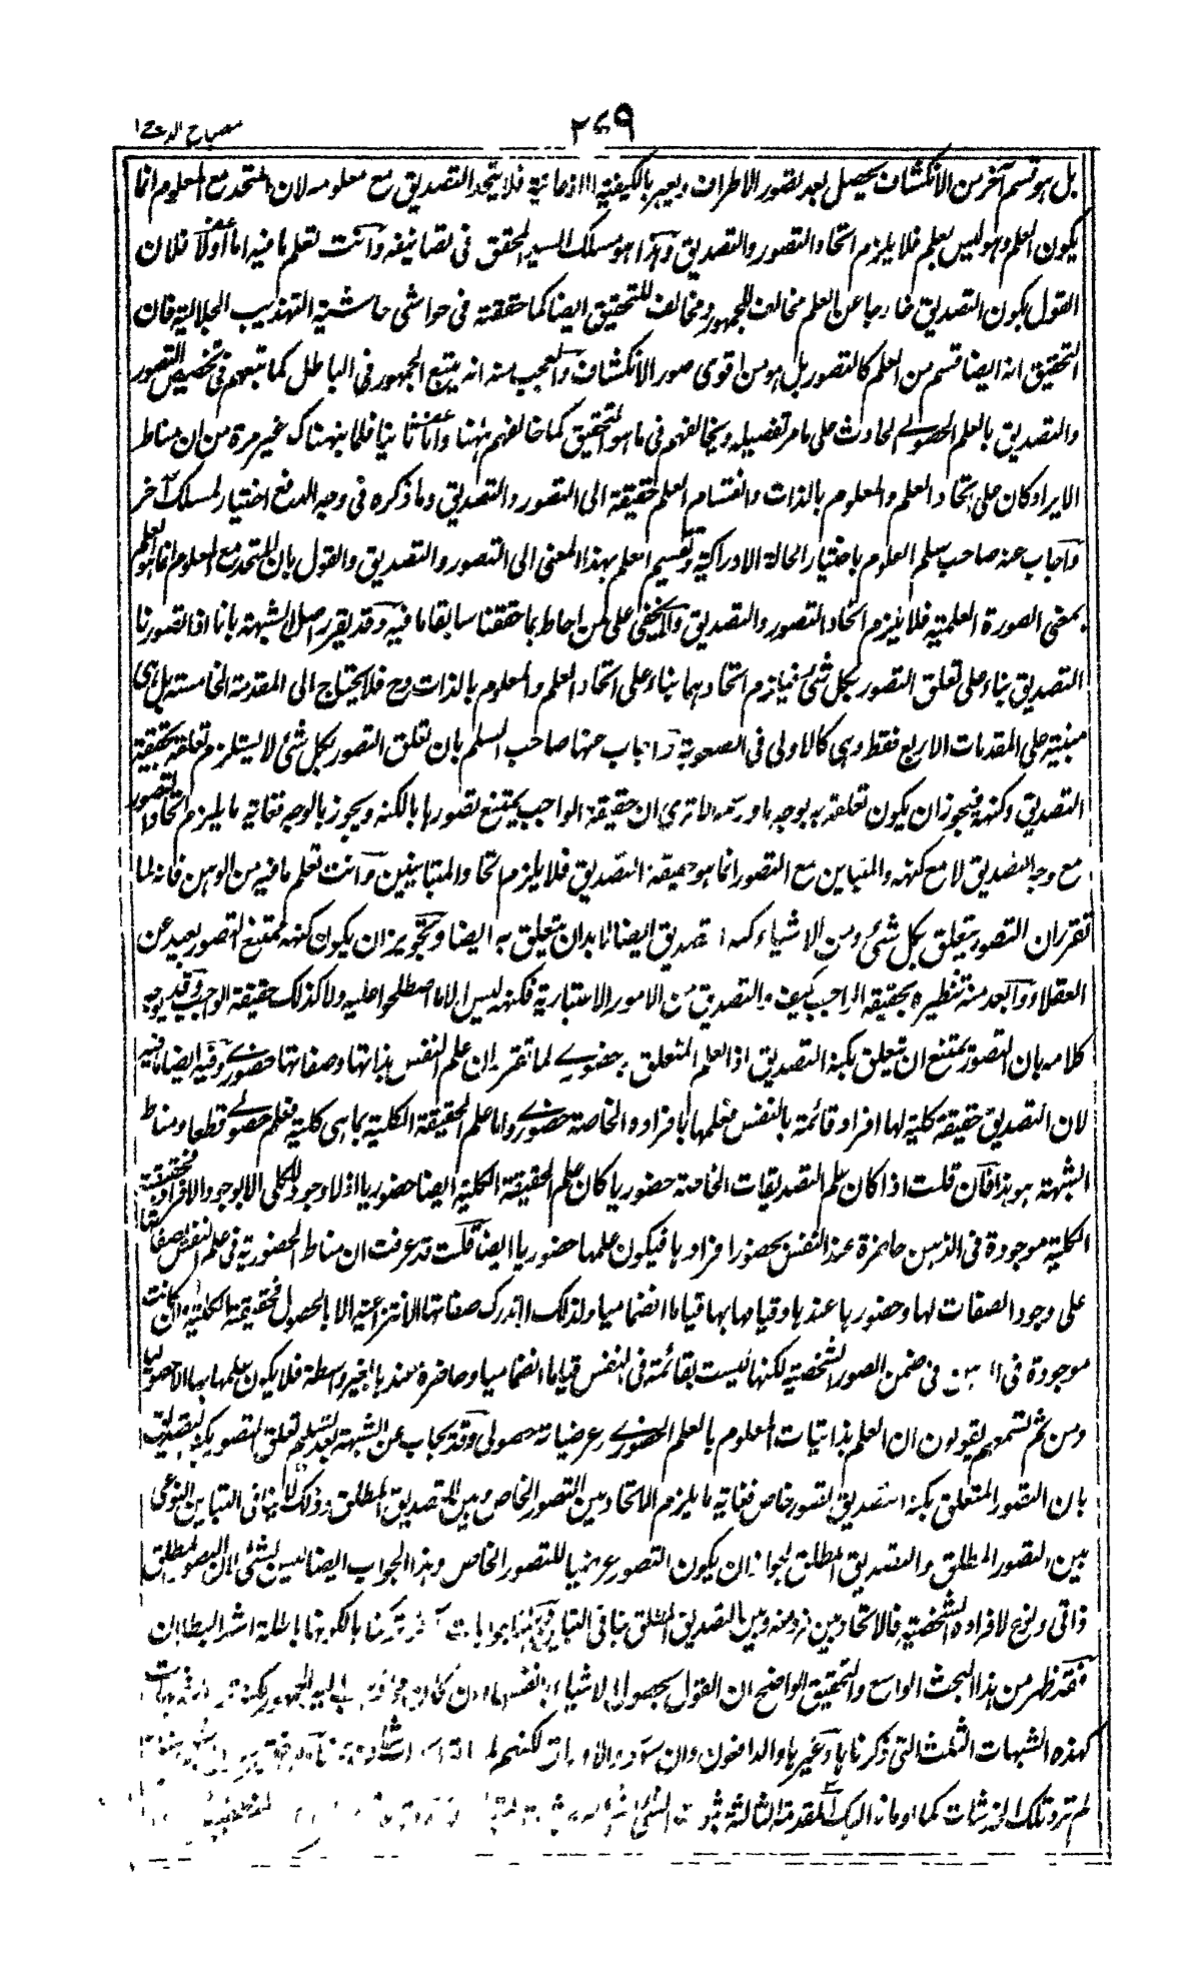 مصباح الدجى
٢٧٩
بل هو قسم آخر من الانكشاف يحصل بعد تصور الاطراف ويعبر بالكيفية الاذعانية فلا يتحد التصديق مع معلومه لان المتحد مع المعلوم انما
يكون العلم وهو ليس بعلم فلا يلزم اتحاد التصور والتصديق وهذا هو مسلك السيد المحقق فى تصانيفه وانت تعلم ما فيه اما اولا فلان
القول بكون التصديق خارجا عن العلم مخالف للجمهور ومخالف للتحقيق ايضا كما حققته فى حواشى حاشية التهذيب الجلالية فان
التحقيق انه ايضا قسم من العلم كالتصور بل هو من اقوى صور الانكشاف والعجب منه انه يتبع الجمهور فى الباطل كما تبعهم فى تخصيص التصور
والتصديق بالعلم الحصولي الحادث على ما مر تفصيله ويخالفهم فى ما هو التحقيق كما خالفهم ههنا واما ثانيا فلما نبهناك غير مرة من ان مناط
الايراد كان على اتحاد العلم والمعلوم بالذات وانقسام العلم حقيقة الى التصور والتصديق وما ذكره فى وجه الدفع اختيار لمسلك آخر
واجاب عنه صاحب سلم العلوم باختيار الحالة الادراكية وتقسيم العلم بهذا المعنى الى التصور والتصديق والقول بان المتحد مع المعلوم انما هو العلم
بمعنى الصورة العلمية فلا يلزم اتحاد التصور والتصديق ولا يخفى على من احاط بما حققنا سابقا ما فيه وقد يقرر اصل الشبهة بانا اذا تصورنا
التصديق بناء على تعلق التصور بكل شئ فيلزم اتحادهما بناء على اتحاد العلم والمعلوم بالذات وح فلا يحتاج الى المقدمة الخامسة بل هى
مبنية على المقدمات الاربع فقط وهى كالاولى فى الصعوبة واجاب عنها صاحب السلم بان تعلق التصور بكل شئ لا يستلزم تعلقه بحقيقة
التصديق وكنهه فيجوز ان يكون تعلقه به بوجه ما ورسمه الا ترى ان حقيقة الواجب يمتنع تصورها بالكنه ويجوز بالوجه فغاية ما يلزم اتحاد التصور
مع وجه التصديق لا مع كنهه والمتباين مع التصور انما هو حقيقة التصديق فلا يلزم اتحاد المتباينين وانت تعلم ما فيه من الوهن فانه لما
تقرر ان التصور يتعلق بكل شئ ومن الاشياء كنه التصديق ايضا لابد ان يتعلق به ايضا وتجويز ان يكون كنهه ممتنع التصور بعيد عن
العقلاء وابعد منه تنظيره بحقيقة الواجب كيف والتصديق من الامور الاعتبارية فكنهه ليس الا ما اصطلحوا عليه ولا كذلك حقيقة الواجب وقد يوجه
كلامه بان التصور يمتنع ان يتعلق بكنه التصديق اذ العلم المتعلق به حضوري لما تقرر ان علم النفس بذاتها وصفاتها حضوري وفيه ايضا ما فيه
لان التصديق حقيقة كلية لها افراد قائمة بالنفس فعلمها بافراده الخاصة حضوري واما علم الحقيقة الكلية بما هى كلية فعلم حصولي قطعا ومناط
الشبهة هو هذا فان قلت اذا كان علم التصديقات الخاصة حضوريا كان علم الحقيقة الكلية ايضا حضوريا اذ لا وجود للكلى الا بوجود الافراد فالحقيقة
الكلية موجودة فى الذهن حاضرة عند النفس بحضور افرادها فيكون علمها حضوريا ايضا قلت قد عرفت ان مناط الحضورية فى علم النفس بصفاتها
على وجود الصفات لها وحضورها عندها وقيامها بها قياما انضماميا ولذلك لا تدرك صفاتها الانتزاعية الا بالحصول فالحقيقة الكلية وان كانت
موجودة فى الذهن فى ضمن الصور الشخصية لكنها ليست بقائمة فى النفس قياما انضماميا وحاضرة عندها بغير واسطة فلا يكون علمها بها الا حصوليا
ومن ثم تسمعهم يقولون ان العلم بذاتيات المعلوم بالعلم الحضوري وعرضياته حصولى وقد يجاب عن الشبهة بعد تسليم تعلق التصور بكنه التصديق
بان التصور المتعلق بكنه التصديق تصور خاص فغاية ما يلزم الاتحاد بين التصور الخاص وبين التصديق المطلق وذلك لا ينافى التباين النوعى
بين التصور المطلق والتصديق المطلق لجواز ان يكون التصور عرضيا للتصور الخاص وهذا الجواب ايضا ليس بشئ لان التصور المطلق
ذاتى ونوع لافراده الشخصية فالاتحاد بين فرد منه وبين التصديق المطلق ينافى التباين وههنا جوابات اخر تركنا ها لكونها باطلة اشد البطلان
فقد ظهر من هذا البحث الواسع والتحقيق الواضح ان القول بحصول الاشياء بانفسها وان كان
كهذه الشبهات الثلث التى ذكرناها وغيرها والدافعون وان سودوا الاوراق لكنهم لم
لم ترد تلك الخدشات كما اومأنا اليك المقدمة الثالثة